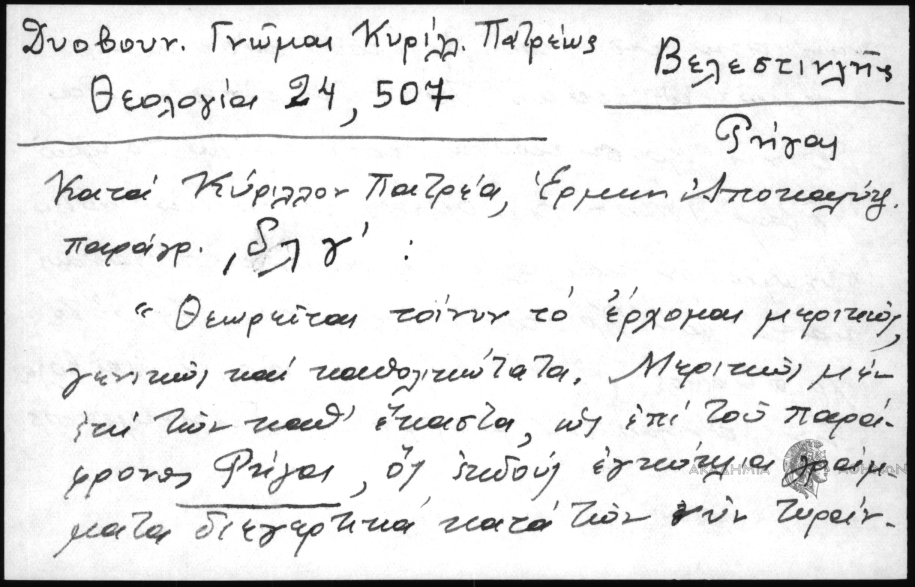 Δυοβουν. Γνῶμαι Κυρίλ. Πατρέως
Θεολογία 24, 507
Βελεστινλῆς
Ρήγας
Κατά Κύριλλον Πατρέα, Ἑρμην. Ἀποκαλύψ.
παράγρ. ͵δλγ' :
“ Θεωρεῖται τοίνυν τό ἔρχομαι μερικῶς,
γενικῶς καί καθολικώτατα. Μερικῶς μέν
ἐπί τῶν καθ' ἕκαστα, ὡς ἐπί τοῦ παρά-
φρονος Ρήγα, ὅς ἐκδούς ἐγκύκλια γράμ-
ματα διεγερτικά κατά τῶν νῦν τυράν-
ΑΚΑΔΗΜΙΑ ΑΘΗΝΩΝ